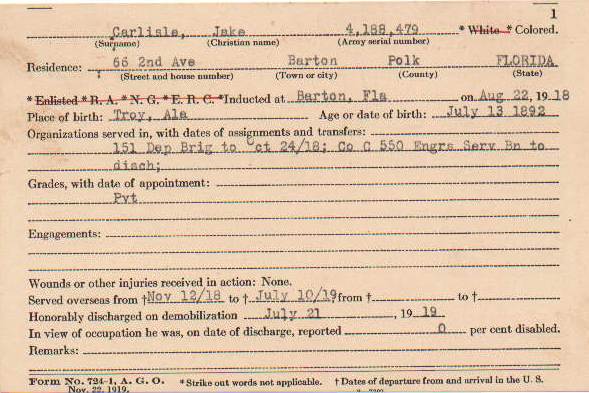 1
Carlisle, Jake 4,188,479 * White * Colored.
(Surname) (Christian name) (Army serial number)
Residence: 66 2nd Ave Barton Polk FLORIDA
(Street and house number) (Town or city) (County) (State)
* Enlisted * R. A. * N. G. * E. R. C. * Inducted at Barton, Fla on Aug 22, 1918
Place of birth: Troy, Ala Age or date of birth: July 13 1892
Organizations served in, with dates of assignments and transfers:
151 Dep Brig to Oct 24/18; Co C 550 Engrs Serv Bn to
disch;
Grades, with date of appointment:
Pvt
Engagements:
Wounds or other injuries received in action: None.
Served overseas from †Nov 12/18 to † July 10/19 from † to †
Honorably discharged on demobilization July 21, 1919
In view of occupation he was, on date of discharge, reported 0 per cent disabled.
Remarks:
Form No. 724-1, A. G. O. * Strike out words not applicable. † Dates of departure from and arrival in the U. S.
Nov. 22, 1919.